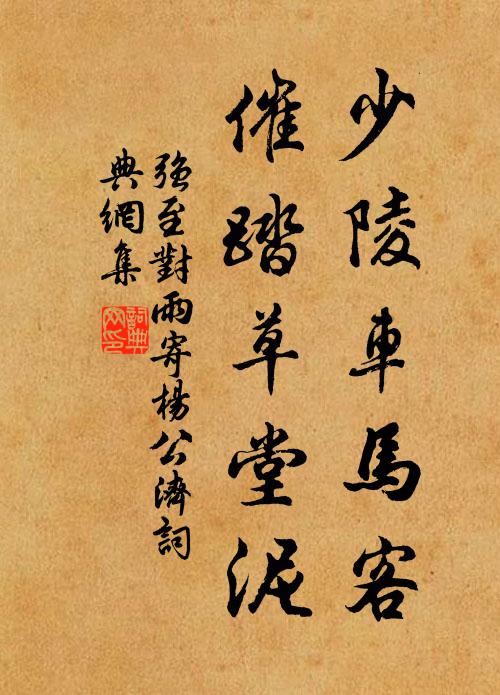 少陵車馬客
催踏草堂泥
強至對雨寄楊公濟詞
典網集
詞典網印